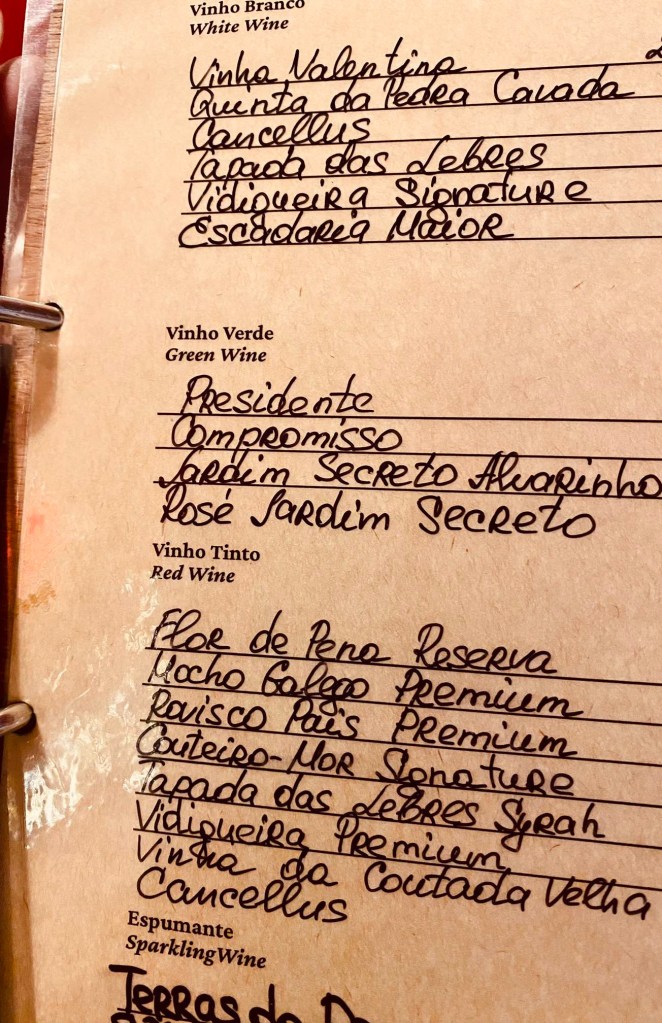 Vinho Branco
White Wine
Vinha Valentina
Quinta da Pedra Cavada
Cancellus
Tapada das Lebres
Vidigueira Signature
Escadaria Maior
Vinho Verde
Green Wine
Presidente
Compromisso
Jardim Secreto Alvarinho
Rosé Jardim Secreto
Vinho Tinto
Red Wine
Flor de Pena Reserva
Mocho Galego Premium
Rovisco Pais Premium
Couteiro-Mor Signature
Tapada das Lebres Syrah
Vidigueira Premium
Vinha da Coutada Velha
Cancellus
Espumante
Sparkling Wine
Terras do